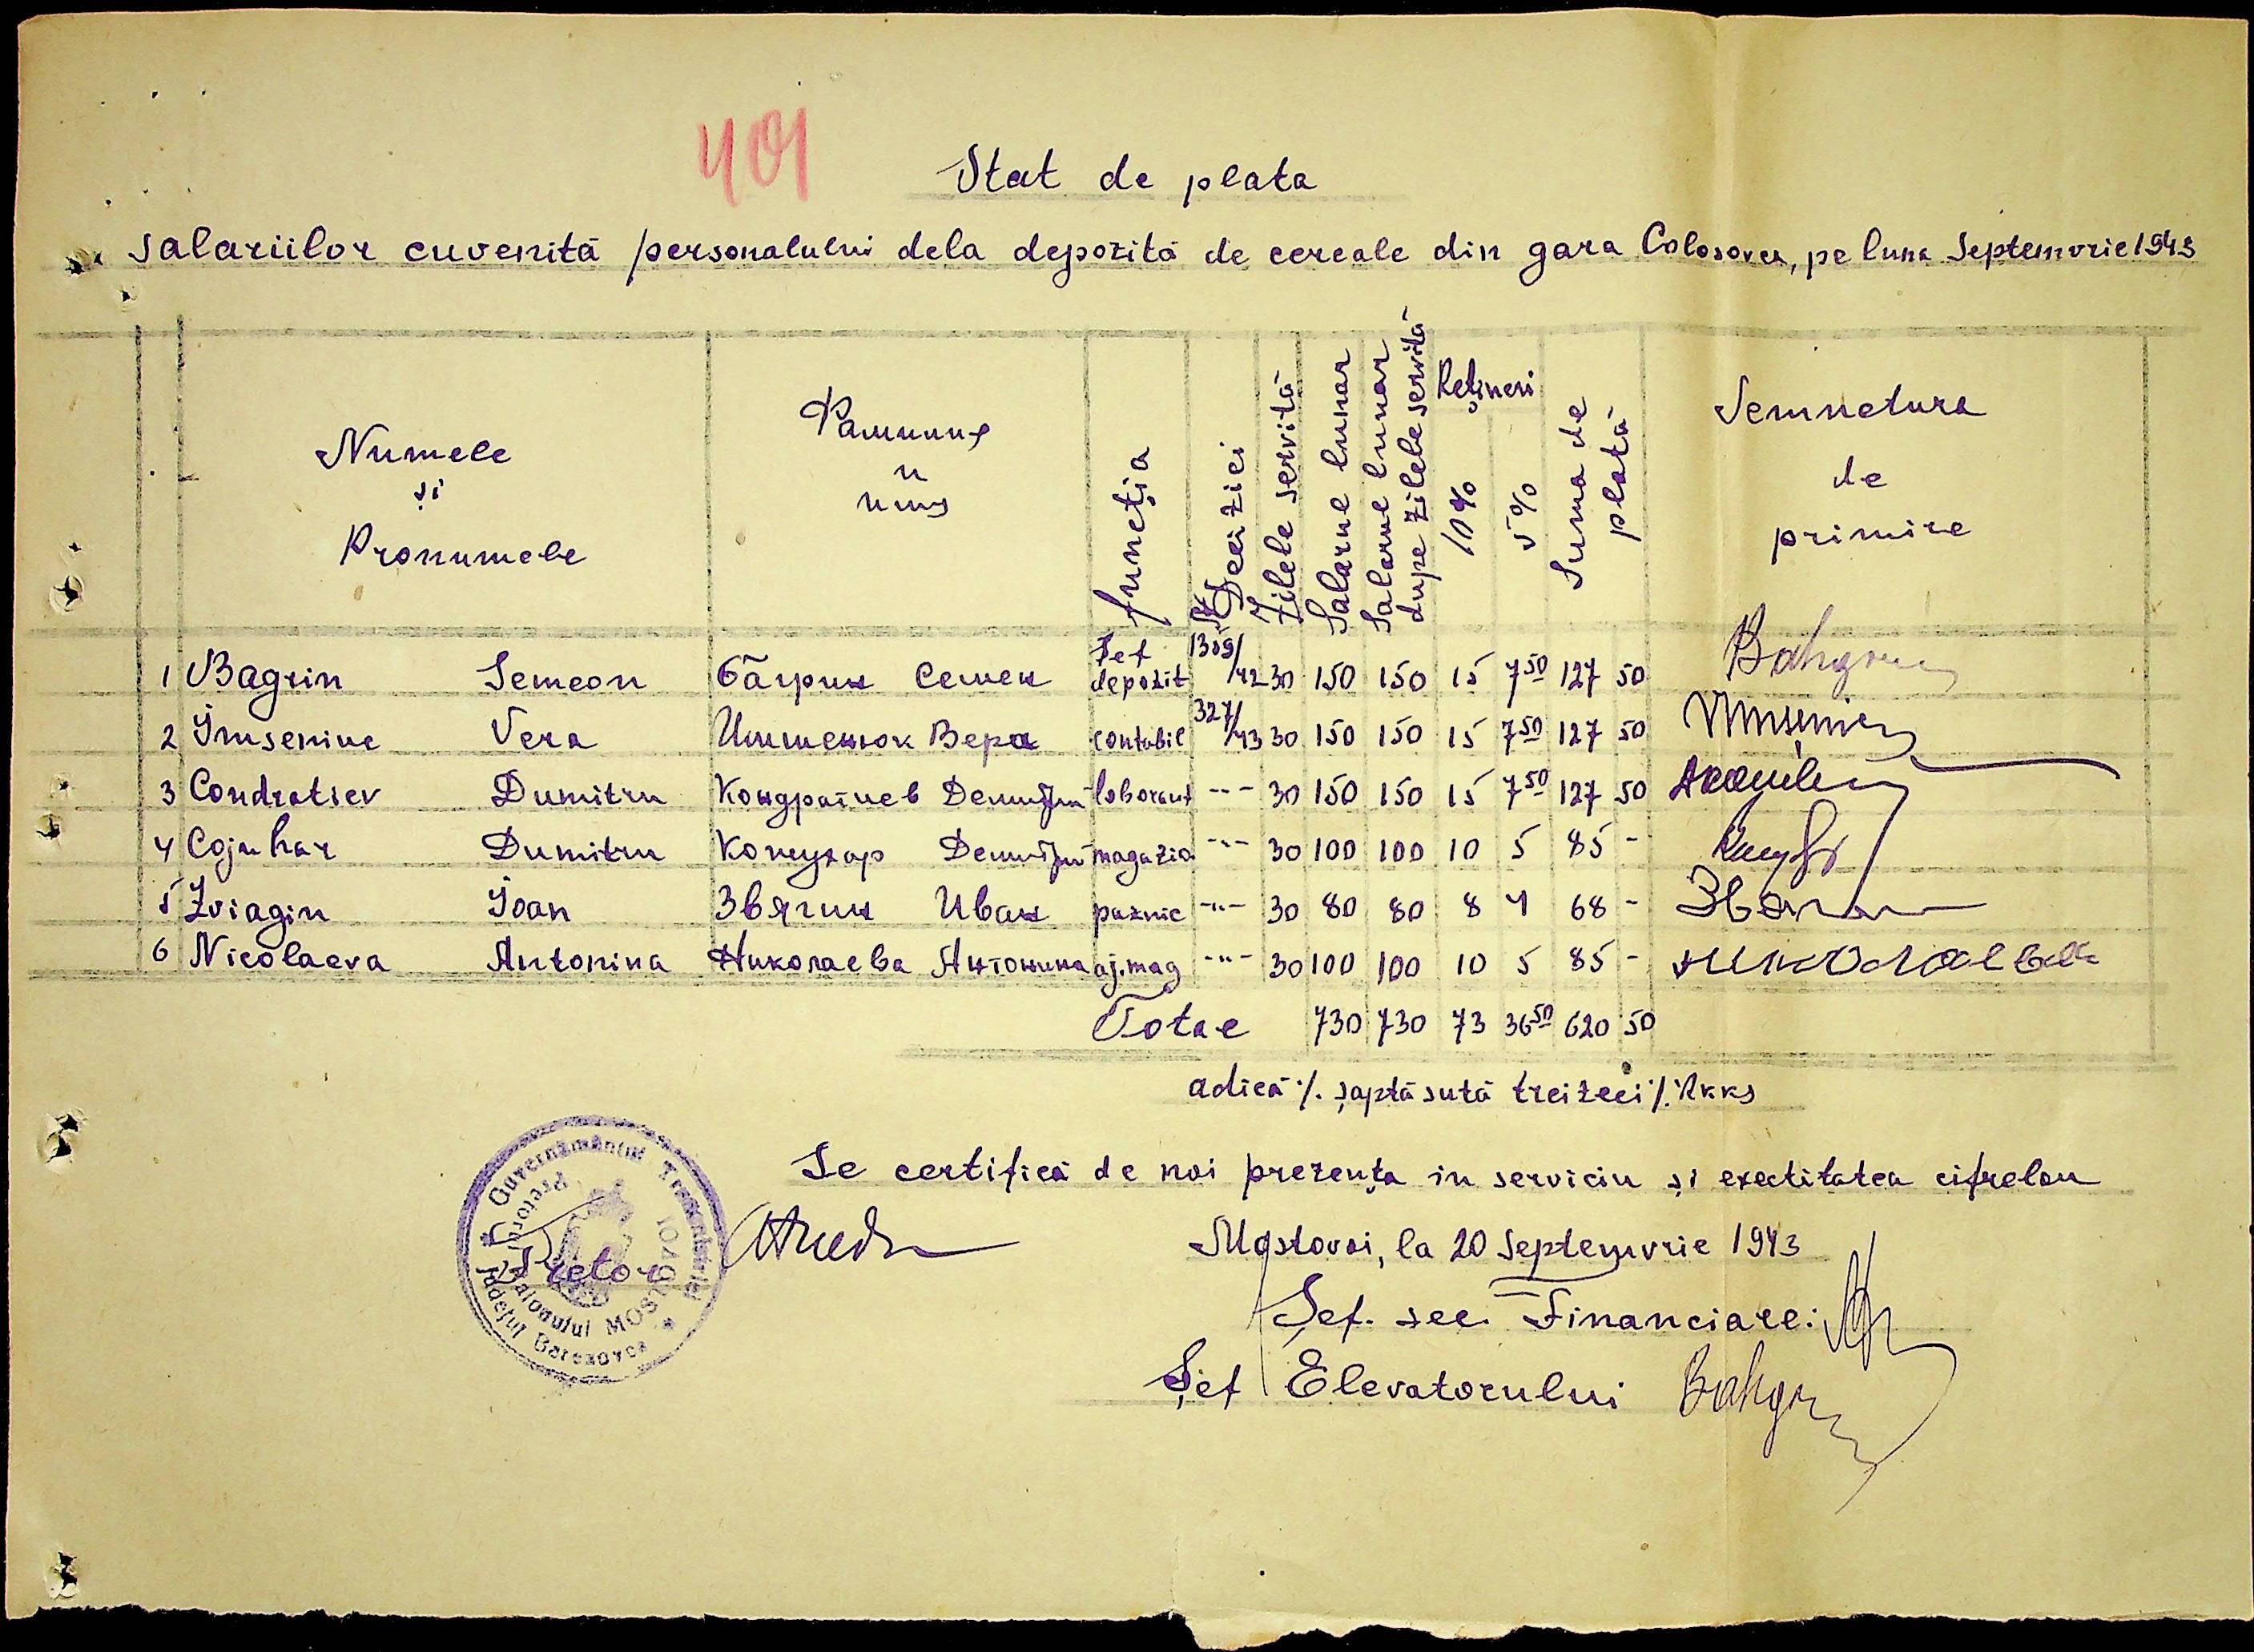 401
Stat de plata
salariilor cuvenită personalului dela depozită de cereale din gara Colosovca, pe luna Septemvrie 1943
Numele și Pronumele
Фамилие и имя
funcția
No Deciziei
Zilele servită
Salarue lunar
Salarue lunar dupe zilele servită
Rețineri
10%
5%
Suma de plată
Semnetura de primire
1 Bagrin Semeon Багрин Семен Șef depozit 1309/42 30 150 150 15 7 50 127 50
2 Imseniuc Vera Имшенюк Вера contabil 327/43 30 150 150 15 7 50 127 50
3 Condratiev Dumitru Кондратиев Демитри laborant -"- 30 150 150 15 7 50 127 50
4 Cojuhar Dumitru Кожухар Демитри magazio -"- 30 100 100 10 5 85 -
5 Zviagin Ioan Звягин Иван paznic -"- 30 80 80 8 4 68 -
6 Nicolaeva Antonina Николаева Антонина aj. mag -"- 30 100 100 10 5 85 - Николаева
Total 730 730 73 36 50 620 50
adică ·/. șaptăsută treizeci ·/. Rkks
Se certifică de noi prezența in serviciu și exectitatea cifrelou
Mostovoi, la 20 Septemvrie 1943
Pretor
Șef. sec. Financiare:
Șef Elevatorului
Guvernământul Transnistriei
Județul Berezovca
Pretor
Raionului MOSTOVOI